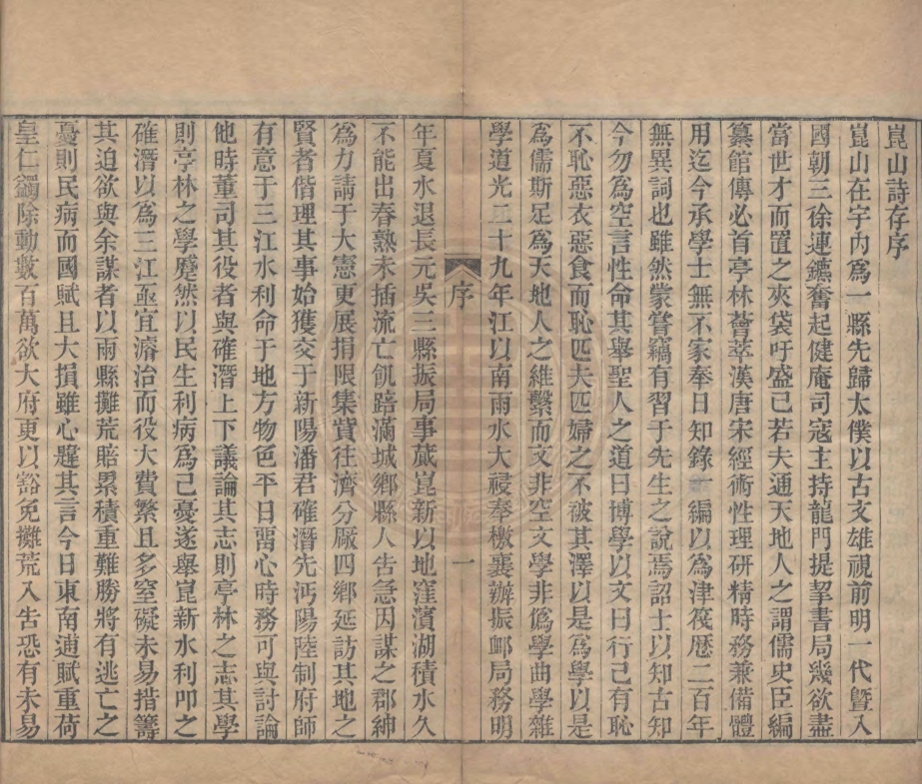 崑山詩存序
崑山在宇內爲一縣先歸太僕以古文雄視前明一代曁入
國朝三徐連鑣奮起健庵司寇主持龍門提挈書局幾欲盡
當世才而置之夾袋吁盛已若夫通天地人之謂儒史臣編
纂館傳必首亭林薈萃漢唐宋經術性理硏精時務兼備體
用迄今承學士無不家奉日知錄一編以爲津筏歷二百年
無異詞也雖然蒙嘗竊有習于先生之說焉詔士以知古知
今勿爲空言性命其舉聖人之道曰博學以文曰行己有恥
不恥惡衣惡食而恥匹夫匹婦之不被其澤以是爲學以是
爲儒斯足爲天地人之維繫而文非空文學非僞學曲學雜
學道光二十九年江以南雨水大祲奉檄襄辦振䘏局務明
序
一
年夏水退長元吳三縣振局事蕆崑新以地窪濱湖積水久
不能出春熟未插流亡飢踣滿城鄉縣人吿急因謀之郡紳
爲力請于大憲更展捐限集貲往濟分厰四鄉延訪其地之
賢者偕理其事始獲交于新陽潘君確潛先沔陽陸制府師
有意于三江水利命于地方物色平日畱心時務可與討論
他時董司其役者與確潛上下議論其志則亭林之志其學
則亭林之學蹙然以民生利病爲己憂遂舉崑新水利叩之
確潛以爲三江亟宜濬治而役大費繁且多窒礙未易措籌
其迫欲與余謀者以兩縣攤荒賠累積重難勝將有逃亡之
憂則民病而國賦且大損雖心韙其言今日東南逋賦重荷
皇仁蠲除動數百萬欲大府更以豁免攤荒入吿恐有未易